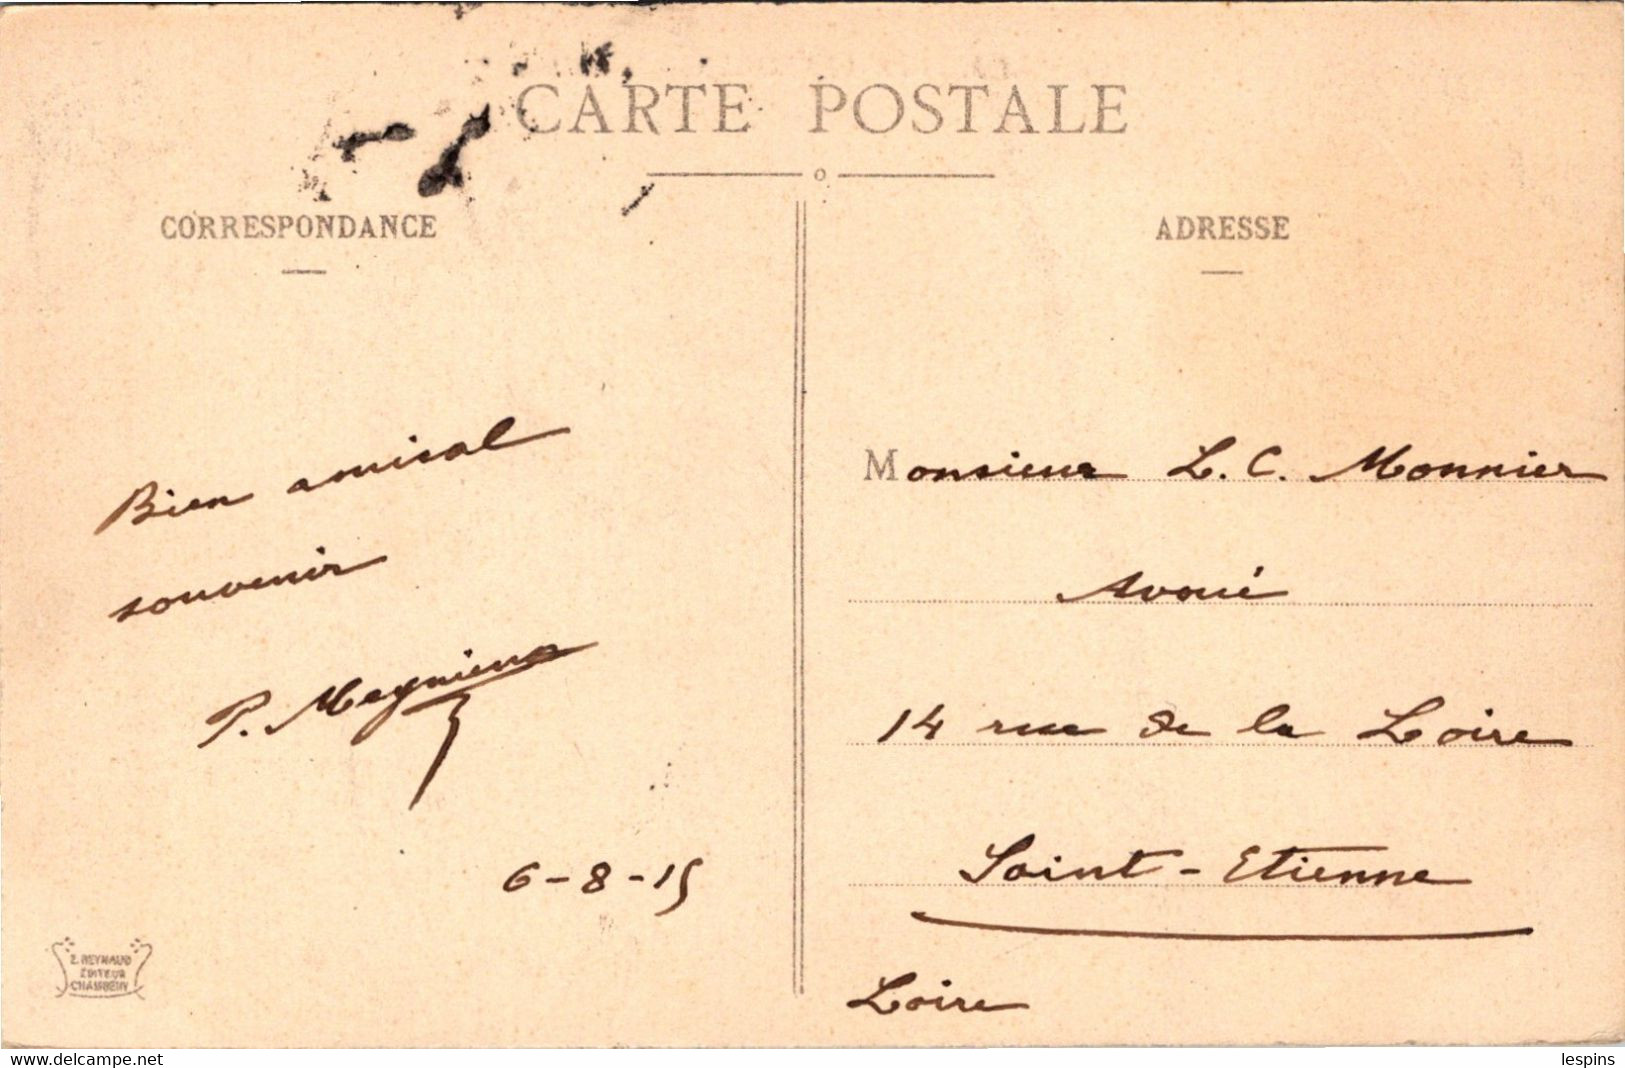 CARTE POSTALE
CORRESPONDANCE
ADRESSE
Bien amical
souvenir
P. Meynieux
6-8-15
E. REYNAUD
ÉDITEUR
CHAMBÉRY
Monsieur L. C. Monnier
Avoué
14 rue de la Loire
Saint-Etienne
Loire
www.delcampe.net
lespins